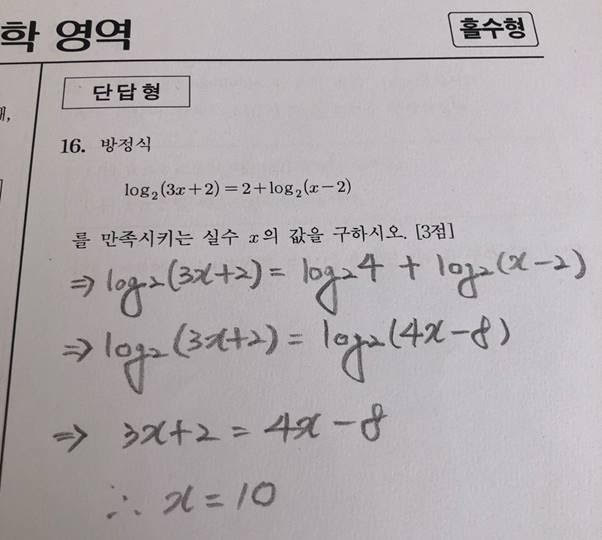 학 영역
홀수형
단답형
16. 방정식
log₂(3x+2)=2+log₂(x−2)
를 만족시키는 실수 x의 값을 구하시오. [3점]
⇒ log₂(3x+2) = log₂4 + log₂(x−2)
⇒ log₂(3x+2) = log₂(4x−8)
⇒ 3x+2 = 4x−8
∴ x = 10